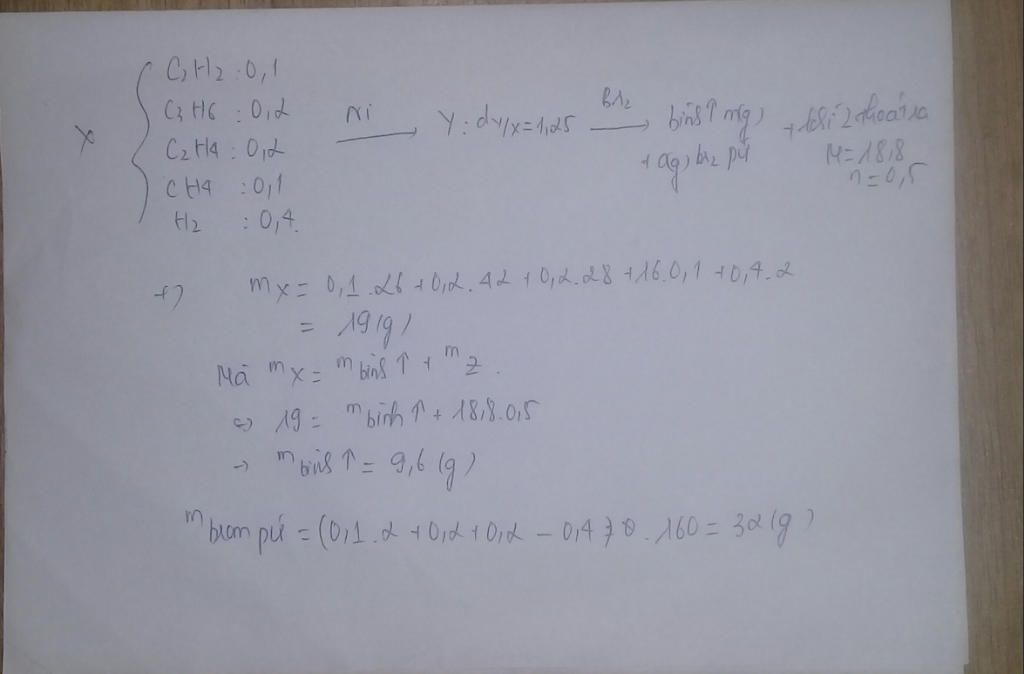 X { C2H2 : 0,1
C3H6 : 0,2
C2H4 : 0,2
CH4 : 0,1
H2 : 0,4.
Ni → Y : dY/X = 1,25 Br2 → bình ↑ m(g) + khí Z thoát ra
+ a(g) br2 pứ M = 18,8
n = 0,5
+) mX = 0,1.26 + 0,2.42 + 0,2.28 + 16.0,1 + 0,4.2
= 19(g)
Mà mX = m bình ↑ + mZ.
⇔ 19 = m bình ↑ + 18,8.0,5
→ m bình ↑ = 9,6 (g)
m brom pứ = (0,1.2 + 0,2 + 0,2 – 0,4 ). 160 = 32(g)